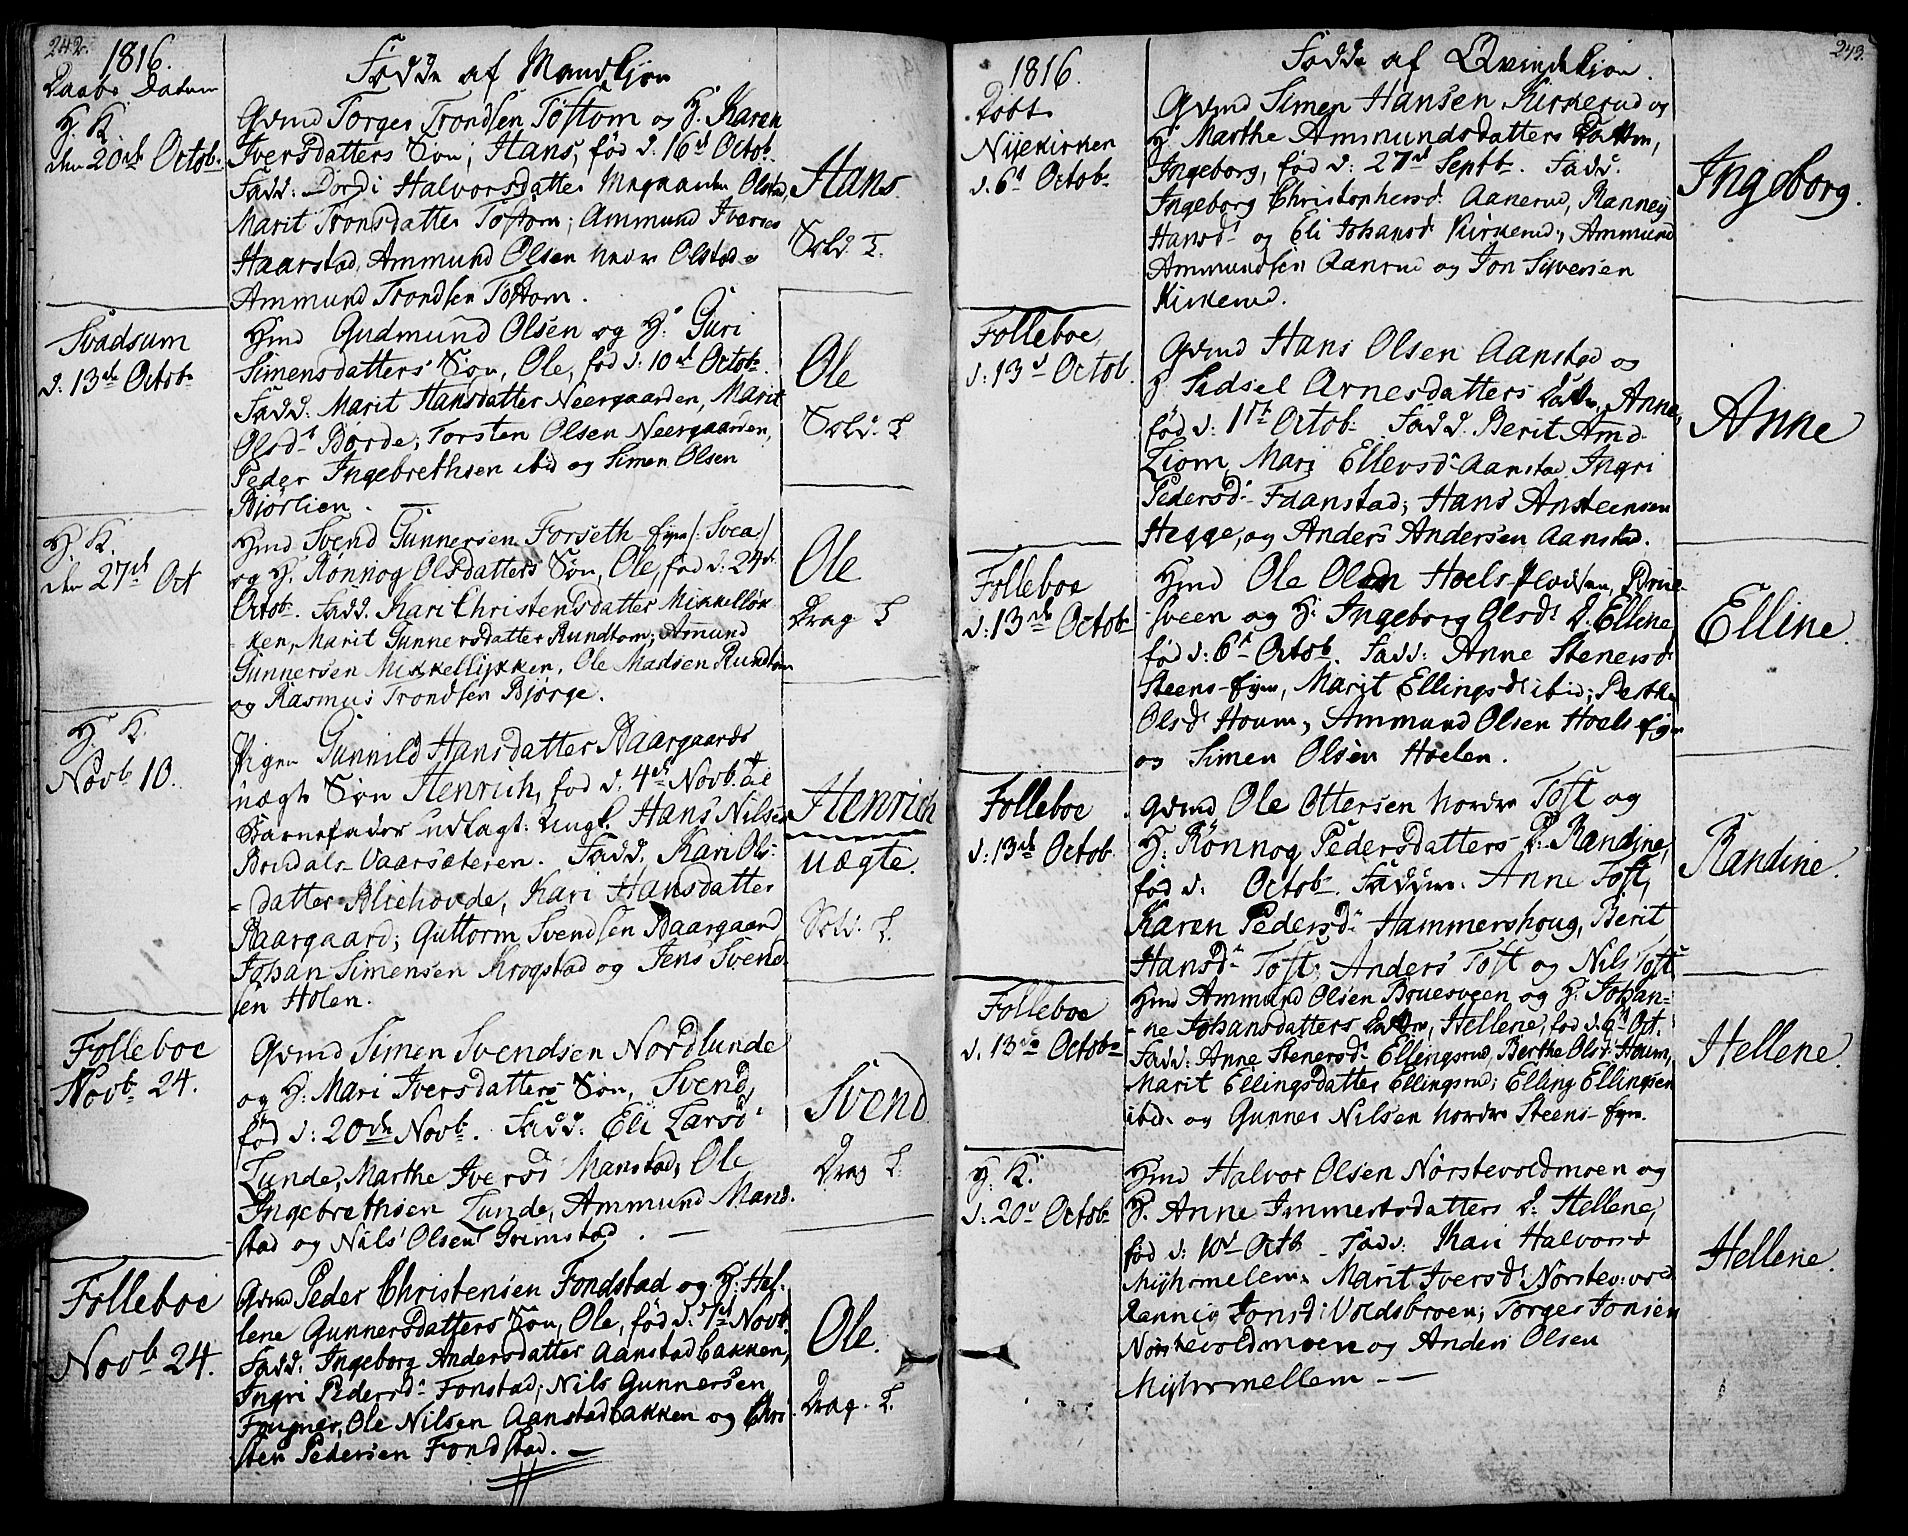 242.
1816.
Daabs Datum
Fødde af Mandkjøn
H. K.
den 20de Octob.
Gvmd Torger Trondsen Tostom og H. Karen
Iversdatters Søn, Hans, fød d. 16d Octob.
Fadd. Dordi Halvorsdatter Olstad,
Marit Tronsdatter Tostom; Ammund Iversen
Haarstad, Ammund Olsen nedre Olstad og
Ammund Trondsen Tostom.
Hans
Sold. L.
Svadsum
d: 13de Octob.
Hmd Gudmund Olsen og H: Guri
Simensdatters Søn, Ole, fød d: 10d Octob.
Fadd. Marit Hansdatter Neergaarden, Marit
Olsd. Børde; Torsten Olsen Neergaarden,
Peder Ingebrethsen ibid og Simen Olsen
Bjørlien.
Ole
Sold. L
H. K.
den 27d Oct
Hmd Svend Gunnersen Forseth-eye /: Svea /
og H. Rønnog Olsdatters Søn, Ole, fød d. 24d
Octob. Fadd. Kari Christensdatter Mikkelløk-
-ken, Marit Gunnersdatter Rundtom; Amund
Gunnersen Mikkelløkken, Ole Madsen Rundtom
og Rasmus Trondsen Bjørge.
Ole
Drag L
H. K.
Novb. 10.
Pigen Gunnild Hansdatter Baargaards
uægte Søn Henrich, fød d. 4de Novb. til
Barnefader udlagt: Ungk. Hans Nilsen
Brudals-Vaarsæteren. Fadd. Kari Ols-
-datter Bliehovde, Kari Hansdatter
Baargaard; Guttorm Svendsen Baargaard
Johan Simensen Krogstad og Jens Svend-
sen Holen.
Henrich
uægte.
Sold. L.
Folleboe
Novb. 24.
Gvmd Simen Svendsen Nordlunde
og H: Mari Iversdatters Søn, Svend,
fød d: 20de Novb. Fadd. Eli Larsd.
Lunde, Marthe Iversd Manstad; Ole
Ingebrethsen Lunde, Ammund Mand-
stad og Nils Olsen Grimstad.
Svend
Drag L.
Folleboe
Novb 24.
Gvmd Peder Christensen Fondstad og H: Hel-
lene Gunnersdatters Søn, Ole, fød d. 7d Novb.
Fadd: Ingeborg Andersdatter Aanstadbakken,
Ingri Pedersd. Fonstad; Nils Gunnersen
Fougner, Ole Nilsen Aanstadbakken og Chri-
sten Pedersen Fondstad.
Ole.
Drag. L.
243.
1816.
Døbt
Fødde af Qvindekjøn.
Nyekirken
d. 6d Octob.
Gvmd Simen Hansen Kirkerud og
H. Marthe Ammundsdatters Datter,
Ingeborg, fød d: 27d Septb. Fadd.
Ingeborg Christophersd. Aanerud, Ranney
Hansd. og Eli Johansd Kirkerud; Ammund
Ammundsen Aanrud og Jon Siversen
Kirkerud.
Ingeborg.
Folleboe
d: 13d Octob.
Gvmd Hans Olsen Aanstad og
H. Sidsel Arnesdatters Datter, Anne,
fød d: 1ste Octob. Fadd. Berit Amd.
Liom, Mari Ellevsd. Aanstad Ingri
Pedersd. Faanstad; Hans Ansteensen
Hegge, og Anders Andersen Aanstad.
Anne
Folleboe
d: 13de Octob
Hmd Ole Olsen Hoels Pladsen, Brue-
-sveen og H: Ingeborg Olsd. D. Elline
fød d: 6d Octob. Fadd: Anne Stenersd.
Steens-eye, Marit Ellingsd. ibid; Berthe
Olsd. Houm; Ammund Olsen Hoels eye
og Simen Olsen Hoelen.
Elline.
Folleboe
d: 13de Octob
Gvmd Ole Ottersen nordre Toft og
H: Rønnog Pedersdatters D: Randine,
fød d: Octob. Faddere. Anne Toft,
Karen Pedersd. Hammershoug, Berit
Hansd. Toft; Anders Toft og Nils Toft
Randine.
Folleboe
d. 13de Octob
Hmd Ammund Olsen Bruesveen og H: Johan-
-ne Johansdatters Datter, Hellene, fød d. 6d Oct.
Fadd: Anne Stenersd. Ellingsrud, Berthe Olsd. Houm,
Marit Ellingsdatter Ellingsrud; Elling Ellingsen
ibid. og Gunner Nilsen nordre Steens-eye.
Hellene.
H. K.
d. 20d Octob
Hmd Halvor Olsen Nørstevoldmoen og
H. Anne Immertsdatters D: Hellene,
fød d: 10d Octb. Fadd: Mari Halvorsd
Myhrmelem, Marit Iversd. Nørstevold
Ranney Jonsd: Voldsbroen; Torger Jonsen
Nørstevoldmoen og Anders Olsen
Myhrmellem.
Hellene.